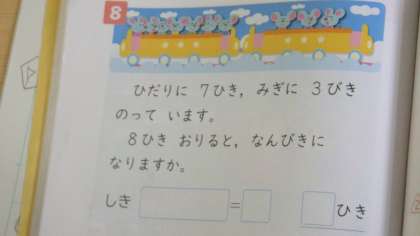 8
ひだりに 7ひき, みぎに 3びき
のって います。
8ひき おりると, なんびきに
なりますか。
しき = ひき